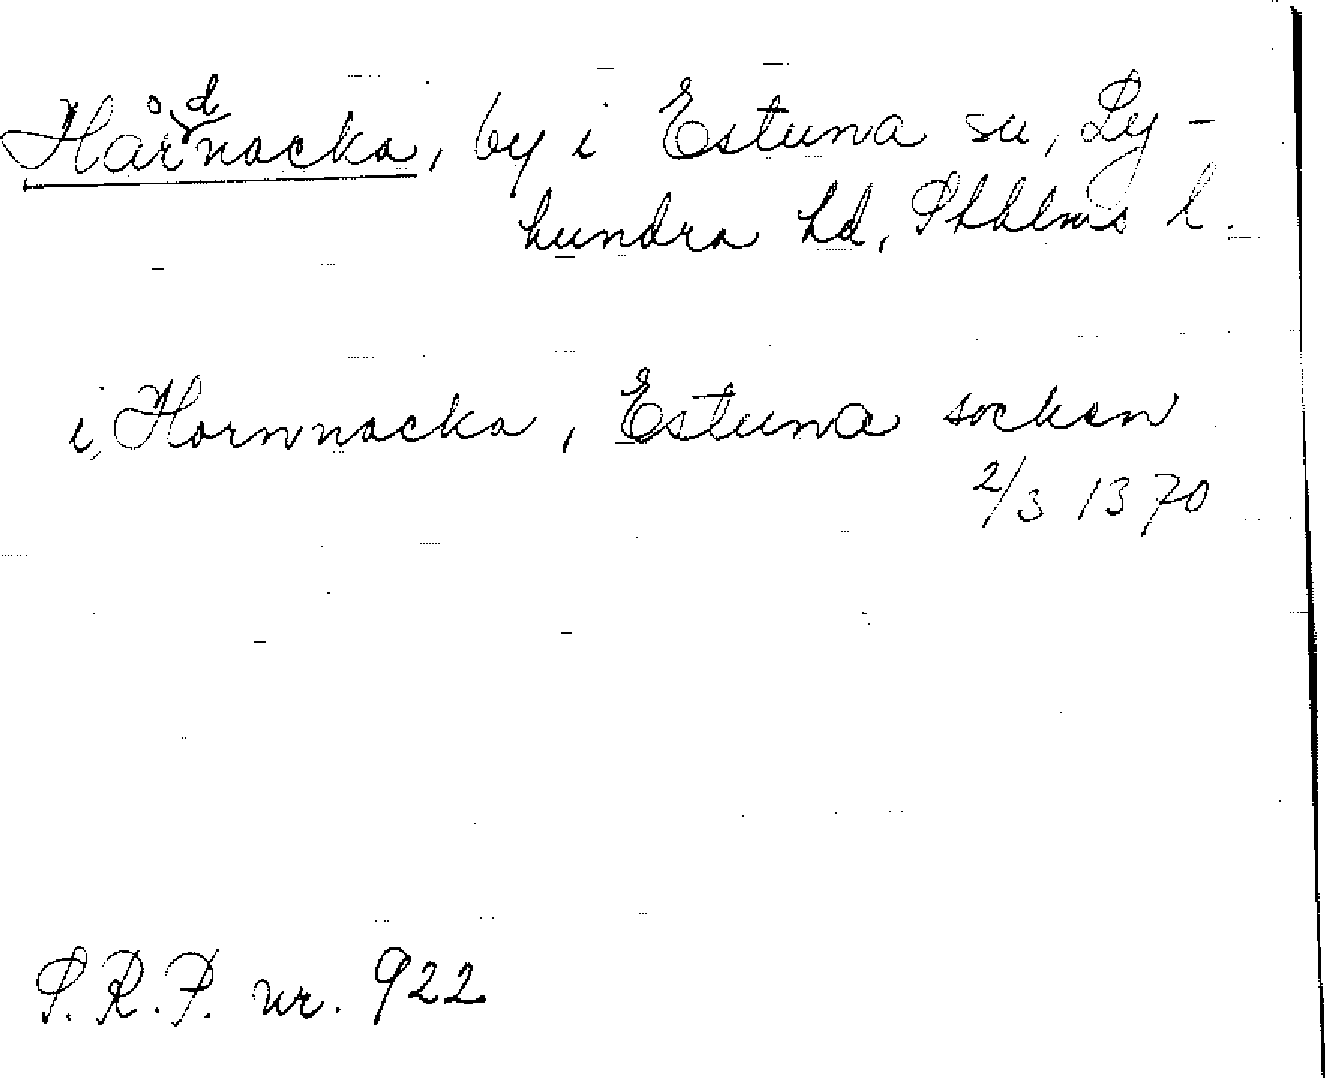 Hårdnacka, by i Estuna sn, Ly-
hundra hd, Sthlms l.
i, Hornnacka, Estuna socken
2/3 1370
S.R.P. nr. 922